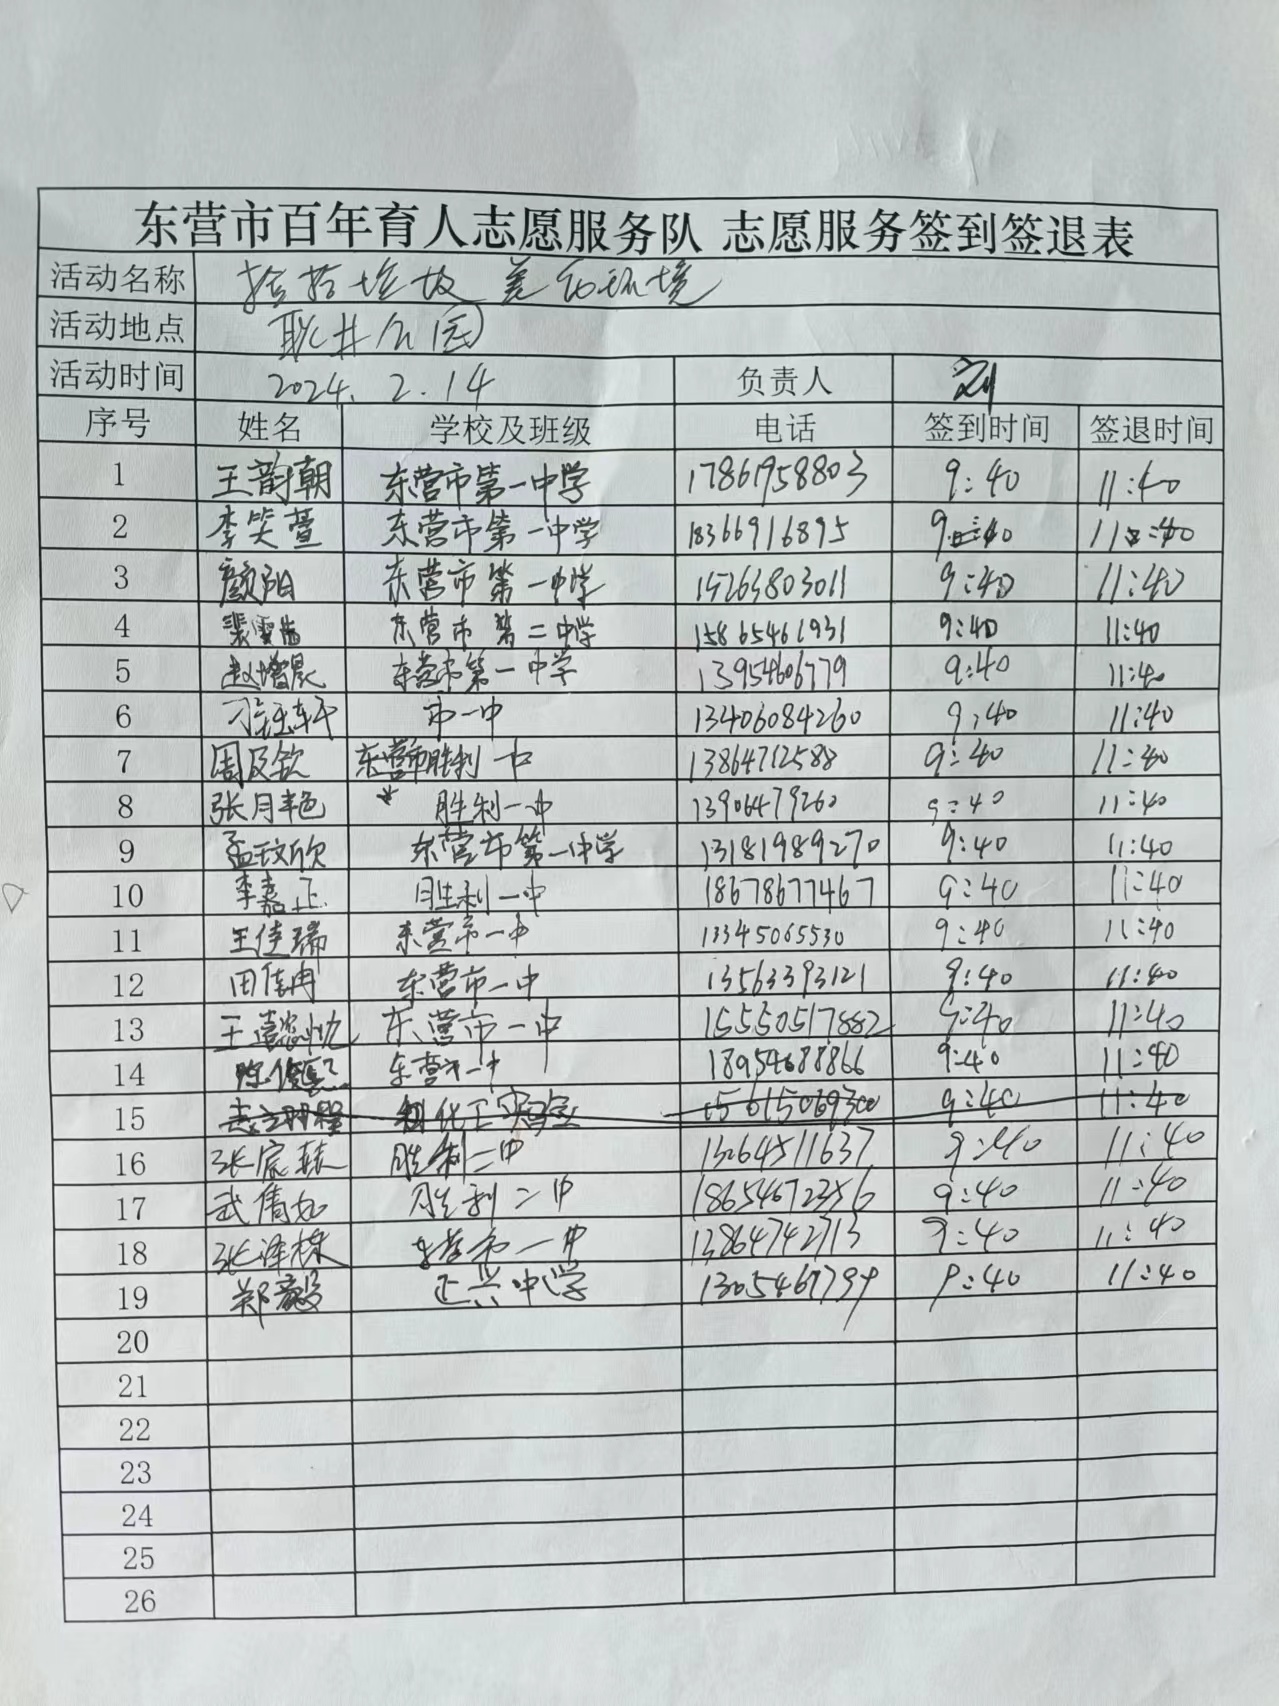 东营市百年育人志愿服务队 志愿服务签到签退表
活动名称 捡拾垃圾 美化环境
活动地点 耿井公园
活动时间 2024.2.14 负责人 刘
序号 姓名 学校及班级 电话 签到时间 签退时间
1 王韵朝 东营市第一中学 17861958803 9:40 11:40
2 李笑萱 东营市第一中学 18366916895 9:40 11:40
3 颜阳 东营市第一中学 15263803011 9:40 11:40
4 东营市第二中学 15865461931 9:40 11:40
5 赵增晨 东营市第一中学 13954606779 9:40 11:40
6 市一中 13406084260 9:40 11:40
7 周及钦 东营市胜利一中 13864712588 9:40 11:40
8 张月艳 胜利一中 13906479260 9:40 11:40
9 孟玟欣 东营市第一中学 13181989270 9:40 11:40
10 李嘉正 胜利一中 18678677467 9:40 11:40
11 王佳瑞 东营市一中 13345065530 9:40 11:40
12 田佳冉 东营市一中 13563393121 9:40 11:40
13 东营市一中 15550517882 9:40 11:40
14 东营市一中 18954688866 9:40 11:40
15 15615069300 9:40 11:40
16 张宸赫 胜利二中 13264511637 9:40 11:40
17 武倩如 胜利二中 18654672356 9:40 11:40
18 张泽栋 东营市一中 13864742713 9:40 11:40
19 郑毅 正兴中学 1305467799 9:40 11:40
20
21
22
23
24
25
26